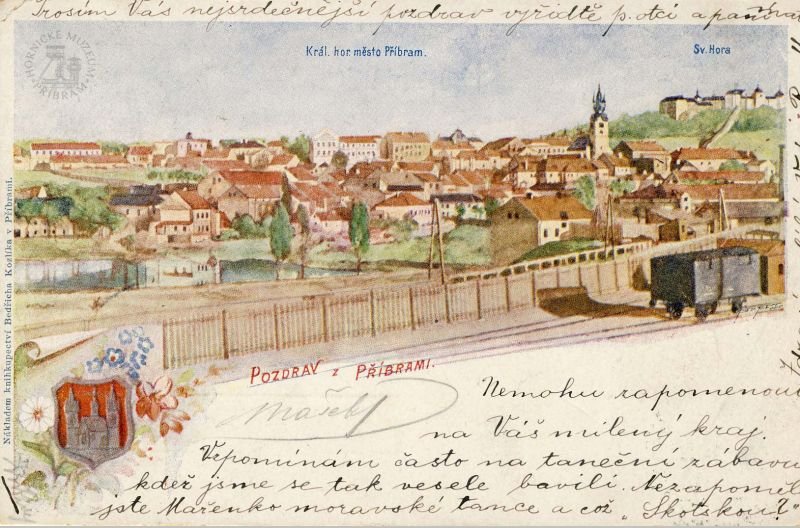 Prosím Vás nejsrdečnější pozdrav vyřiďte p. otci a
HORNICKÉ MUZEUM PŘÍBRAM
Král. hor. město Příbram.
Sv. Hora
Nákladem knihkupectví Bedřicha Kozlíka v Příbrami.
POZDRAV z PŘÍBRAMI.
Mašek
Nemohu zapomenou
na Váš milený kraj.
Vzpomínám často na taneční zábavu
kdež jsme se tak vesele bavili. Nezapoměl
jste Mařenko moravské tance a což „Skotskou?"